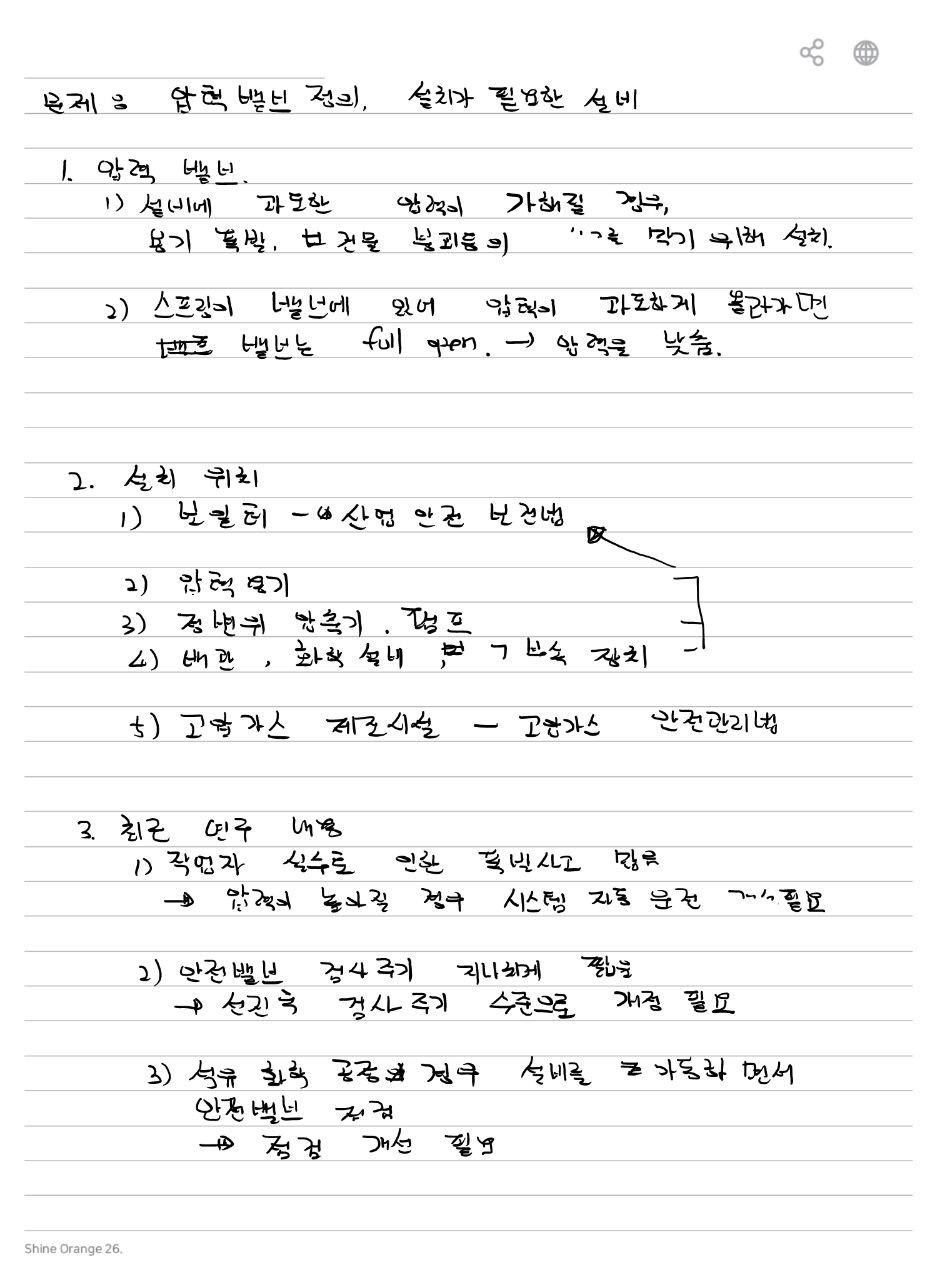 문제 : 압력 밸브 정의, 설치가 필요한 설비
1. 압력 밸브.
1) 설비에 과도한 압력이 가해질 경우,
용기 폭발, 건물 붕괴등의 막기 위해 설치.
2) 스프링이 밸브에 있어 압력이 과도하게 올라가면
밸브는 full open. → 압력을 낮춤.
2. 설치 위치
1) 보일러 → 산업 안전 보건법
2) 압력 용기
3) 정변위 압축기. 펌프
4) 배관, 화학 설비, 그 부속 장치
5) 고압가스 제조시설 - 고압가스 안전관리법
3. 최근 연구 내용
1) 작업자 실수로 인한 폭발사고 많음
→ 압력이 높아질 경우 시스템 자동 운전 필요
2) 안전밸브 검사 주기 지나치게 짧음
→ 선진국 검사 주기 수준으로 개정 필요
3) 석유 화학 공정 경우 설비를 가동하면서
안전밸브 점검
→ 점검 개선 필요
Shine Orange 26.